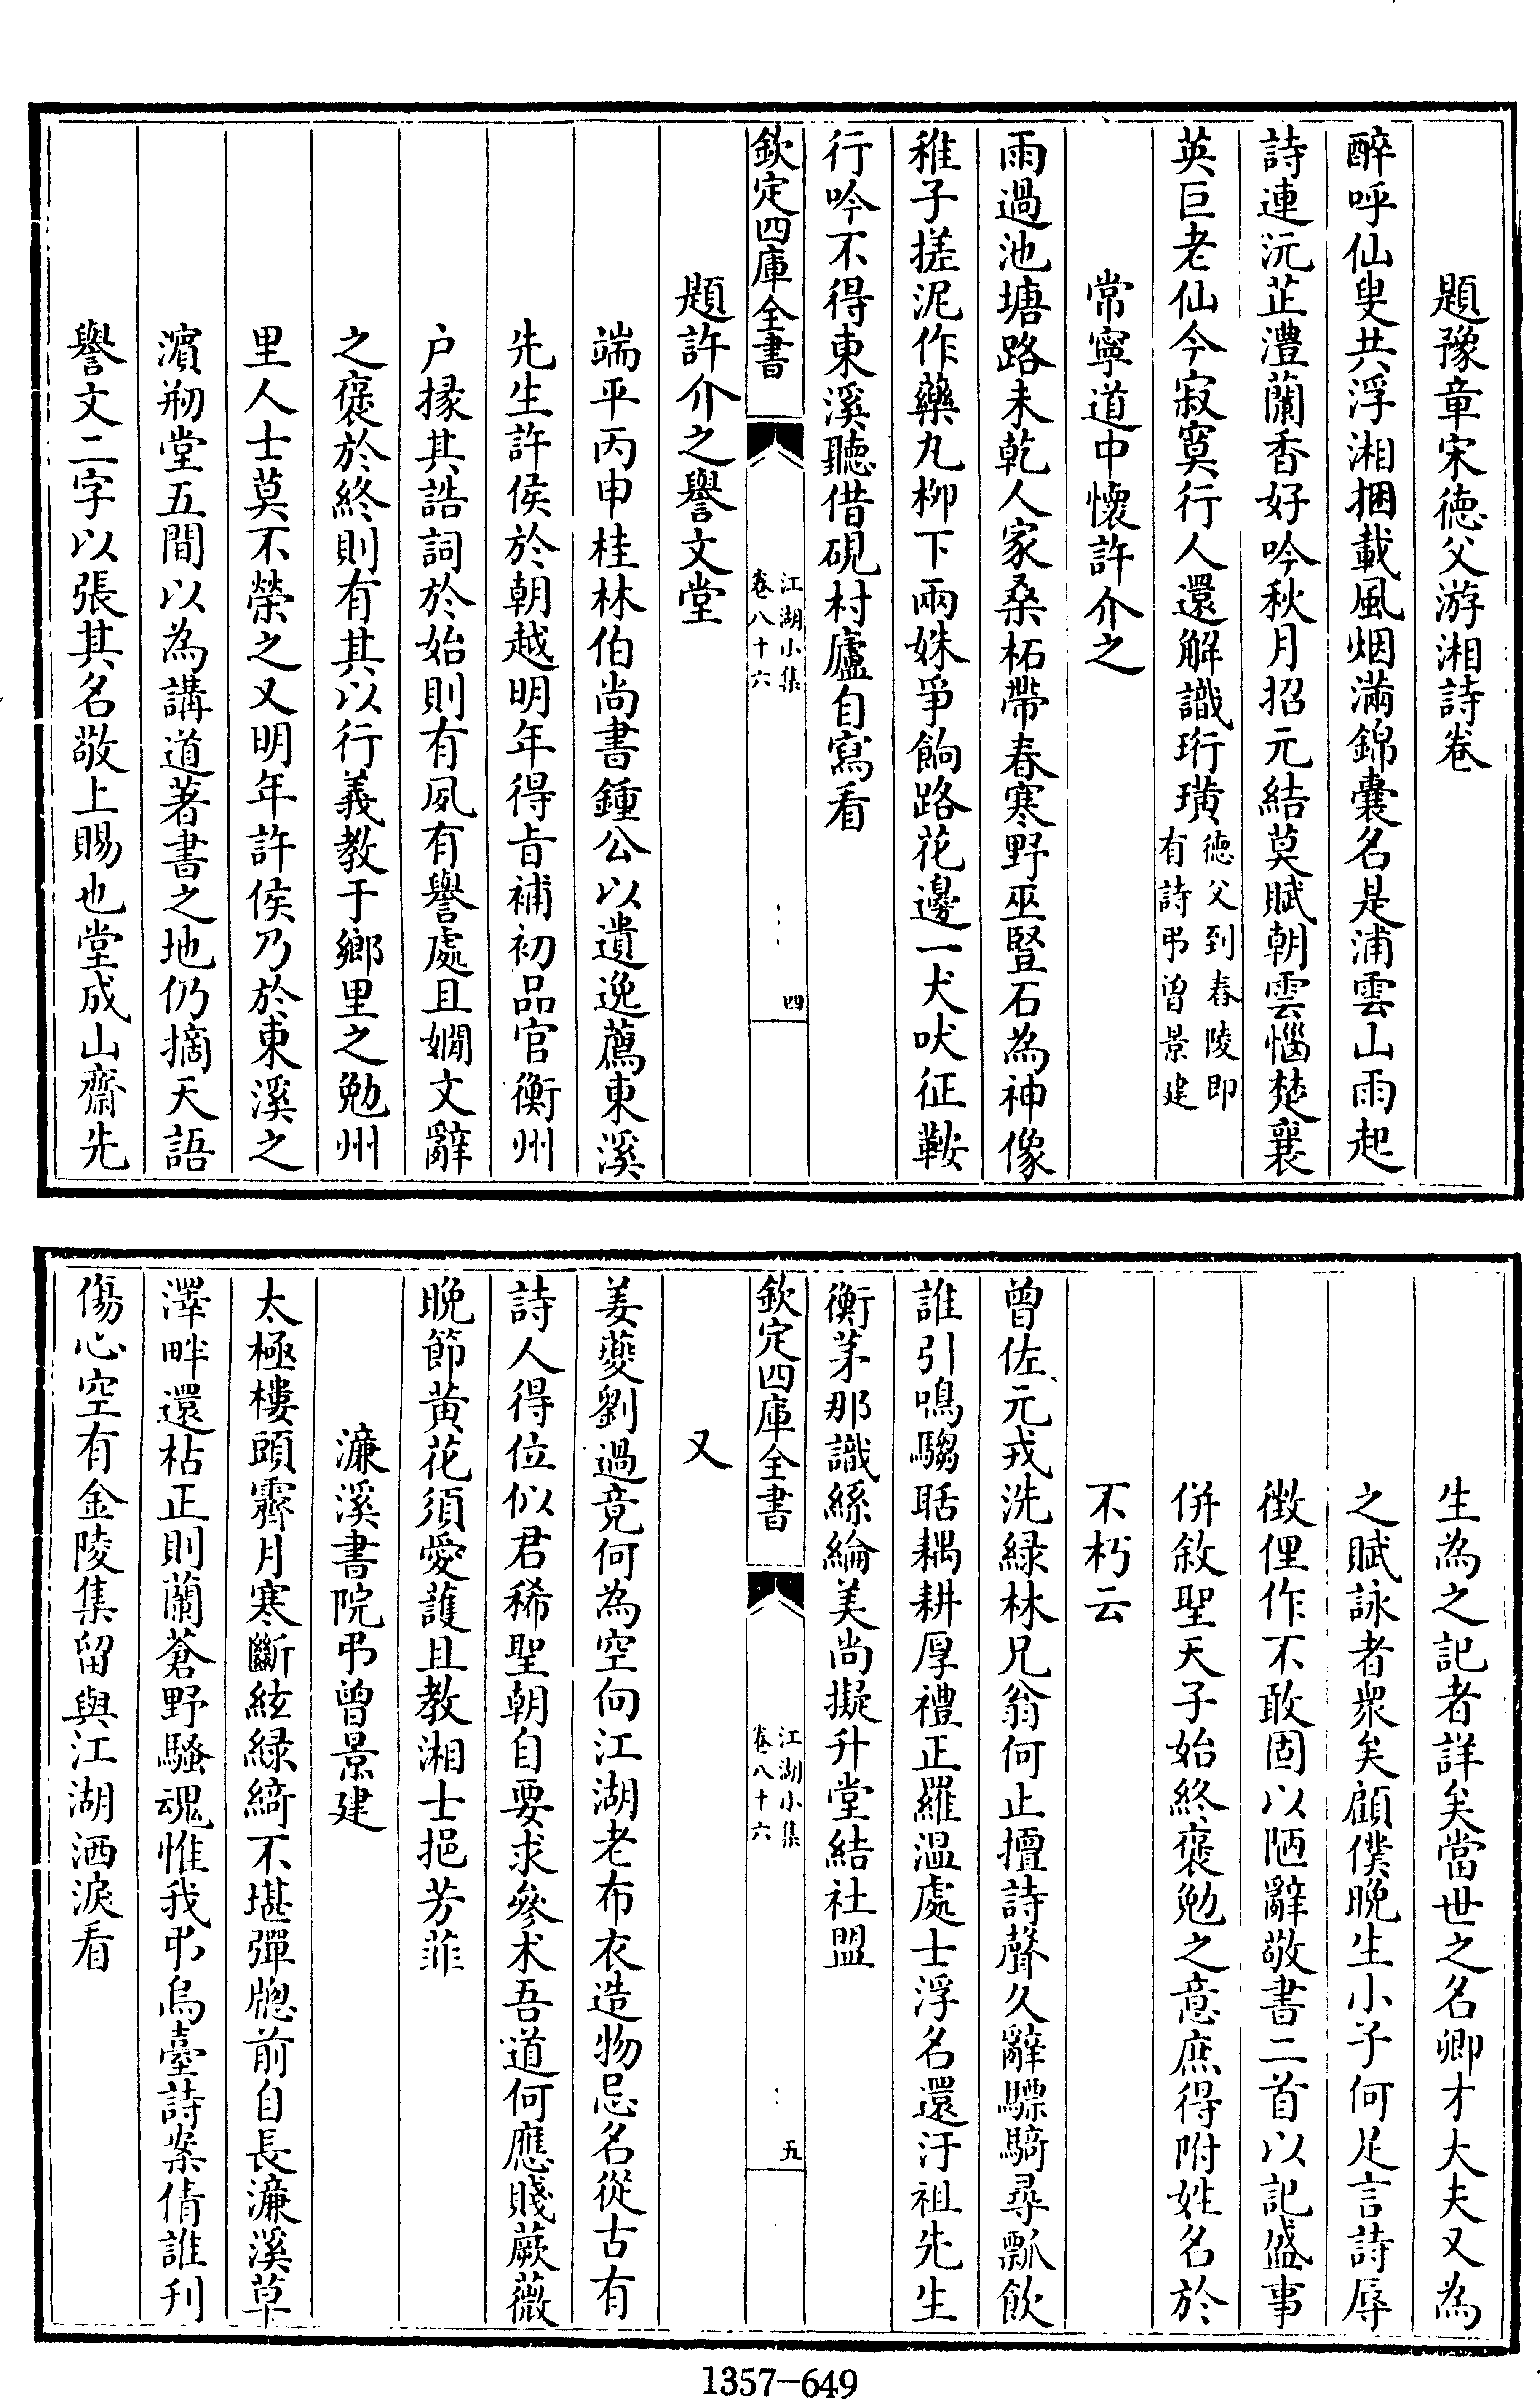 題豫章宋徳父游湘詩卷
醉呼仙叟共浮湘捆載風烟滿錦囊名是浦雲山雨起
詩連沅芷澧蘭香好吟秋月招元結莫賦朝雲惱楚襄
英巨老仙今寂寞行人還解識珩璜徳父到舂陵即有詩弔曾景建
常寧道中懷許介之
雨過池塘路未乾人家桑柘帶春寒野巫豎石為神像
稚子搓泥作藥丸柳下兩姝爭餉路花邊一犬吠征鞍
行吟不得東溪聽借硯村廬自寫看
欽定四庫全書
江湖小集
卷八十六
四
題許介之譽文堂
端平丙申桂林伯尚書鍾公以遺逸薦東溪
先生許侯於朝越明年得㫖補初品官衡州
户掾其誥詞於始則有夙有譽處且嫺文辭
之褒於終則有其以行義教于鄉里之勉州
里人士莫不榮之又明年許侯乃於東溪之
濵剏堂五間以為講道著書之地仍摘天語
譽文二字以張其名敬上賜也堂成山齋先
生為之記者詳矣當世之名卿才大夫又為
之賦詠者衆矣顧僕晚生小子何足言詩辱
徴俚作不敢固以陋辭敬書二首以記盛事
併敘聖天子始終褒勉之意庶得附姓名於
不朽云
曾佐元戎洗緑林兄翁何止擅詩聲久辭驃騎尋瓢飲
誰引鳴騶聒耦耕厚禮正羅温處士浮名還汙祖先生
衡茅那識絲綸美尚擬升堂結社盟
欽定四庫全書
江湖小集
卷八十六
五
又
姜夔劉過竟何為空向江湖老布衣造物忌名從古有
詩人得位似君稀聖朝自要求參术吾道何應賤蕨薇
晚節黄花須愛護且教湘士挹芳菲
濂溪書院弔曾景建
太極樓頭霽月寒斷絃緑綺不堪彈牎前自長濂溪草
澤畔還枯正則蘭蒼野騷魂惟我弔烏臺詩案倩誰刋
傷心空有金陵集留與江湖洒淚看
1357-649